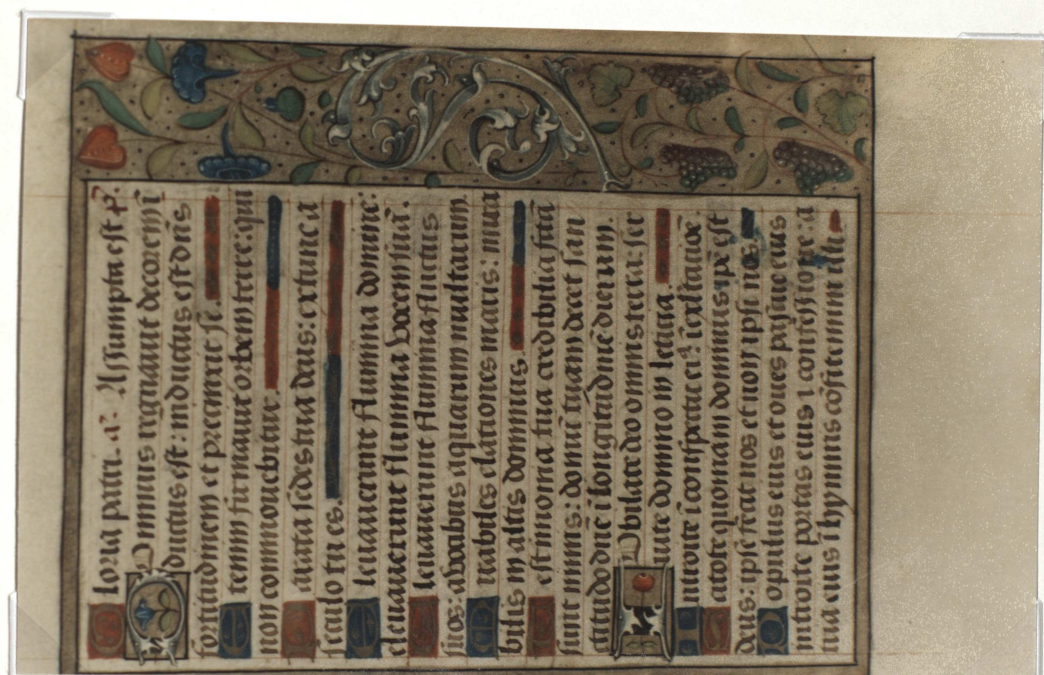 Gloria patri. aª: Assumpta est. p̄.
Dominus regnauit decorem ī
dutus est: indutus est dn̄s
fortitudinem et precinxit se.
Etenim firmauit orbem terre: qui
non commouebitur.
Parata sedes tua deus: ex tunc a
seculo tu es.
Eleuauerunt flumina domine:
eleuauerunt flumina vocem suā.
Eleuauerunt flumina fluctus
suos: a vocibus aquarum multarum.
Mirabiles elationes maris: mira
bilis in altis dominus.
Testimonia tua credibilia factā
sunt nimis: domum tuam decet san
ctitudo dn̄e ī longitudīne dierum.
Jubilate deo omnis terra: ser
uite domino in leticia.
Introite ī conspectu eiꝰ: ī exultatiōe.
Scitote quoniam dominus ipse est
deus: ipse fecit nos et non ipsi nos.
Populus eius et oues pascue eius
introite portas eius ī confessione: a
tria eius ī hymnis cōfitemini illi.